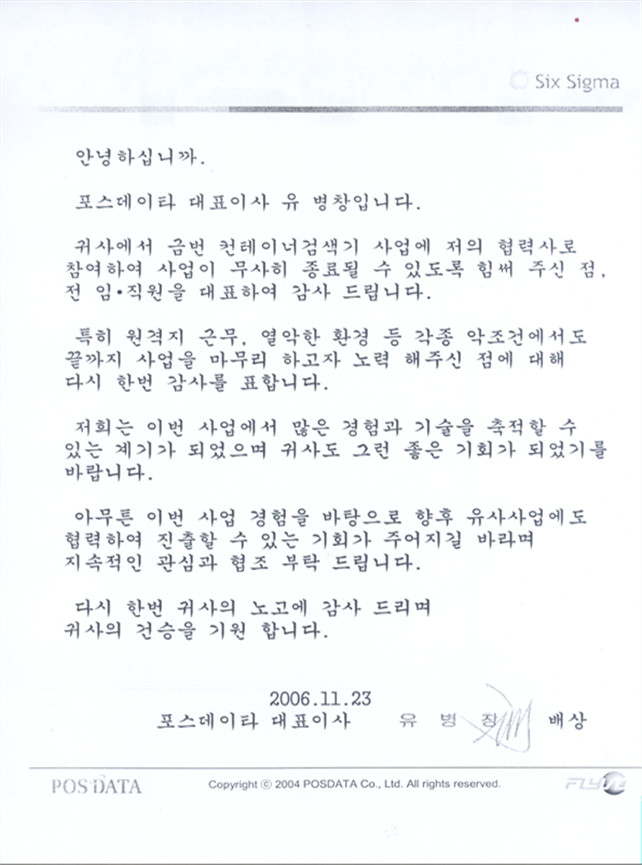 Six Sigma
안녕하십니까.
포스데이타 대표이사 유 병창입니다.
귀사에서 금번 컨테이너검색기 사업에 저의 협력사로
참여하여 사업이 무사히 종료될 수 있도록 힘써 주신 점,
전 임·직원을 대표하여 감사 드립니다.
특히 원격지 근무, 열악한 환경 등 각종 악조건에서도
끝까지 사업을 마무리 하고자 노력 해주신 점에 대해
다시 한번 감사를 표합니다.
저희는 이번 사업에서 많은 경험과 기술을 축적할 수
있는 계기가 되었으며 귀사도 그런 좋은 기회가 되었기를
바랍니다.
아무튼 이번 사업 경험을 바탕으로 향후 유사사업에도
협력하여 진출할 수 있는 기회가 주어지길 바라며
지속적인 관심과 협조 부탁 드립니다.
다시 한번 귀사의 노고에 감사 드리며
귀사의 건승을 기원 합니다.
2006.11.23
포스데이타 대표이사 유 병 창 배상
POSDATA Copyright ⓒ 2004 POSDATA Co., Ltd. All rights reserved.